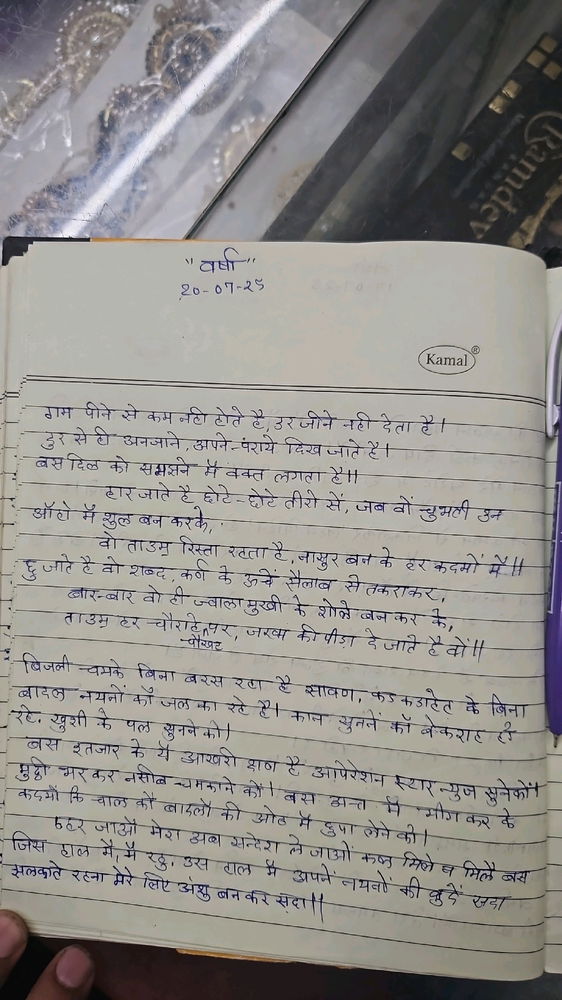 Ramdev
"वर्षा"
20-07-25
Kamal®
गम पीने से कम नही होते है, डर जीने नही देता है।
दुर से ही अनजाने, अपने-पराये दिख जाते है।
बस दिल को समझने मै वक्त लगता है॥
हार जाते है छोटे-छोटे तीरो सें, जब वों चुभती उन
ऑहो मैं शुल बन करके,
वो ताउम्र रिस्ता रहता है, नासुर बन के हर कदमों में॥
छु जाते है वो शब्द, कर्ण के ऊचें सैलाब से तकराकर,
बार-बार वो ही ज्वालामुखी के शोले बन कर के,
ताउम्र हर चौराहे, पर, जख्म की पीडा दे जाते है वों॥
चौखट
बिजली चमके बिना बरस रहा है सावण, कडकडाहेत के बिना
बादल नयनों कॉ जल का रहे है। कान सुननें कॉ बेकरार हो
रहे, खुशी के पल सुनने को।
बस इतजार के ये आखरी क्षण है आपेरेशन स्टार न्युज सुनेको।
मुठ्ठी भर कर नसीब चमकाने कों। बस अन्त मैं भीग कर के
कदमों कि चाल कों बादलों की ओठ मैं छुपा लेने को।
ठहर जाओं मेरा अब सन्देश ले जाओं कल मिले न मिलै बस
जिस हाल मै, मैं रहु, उस हाल मै अपनें नयनों की बुदें सदा
झलकाते रहना मेरे लिए अंशु बन कर सदा॥